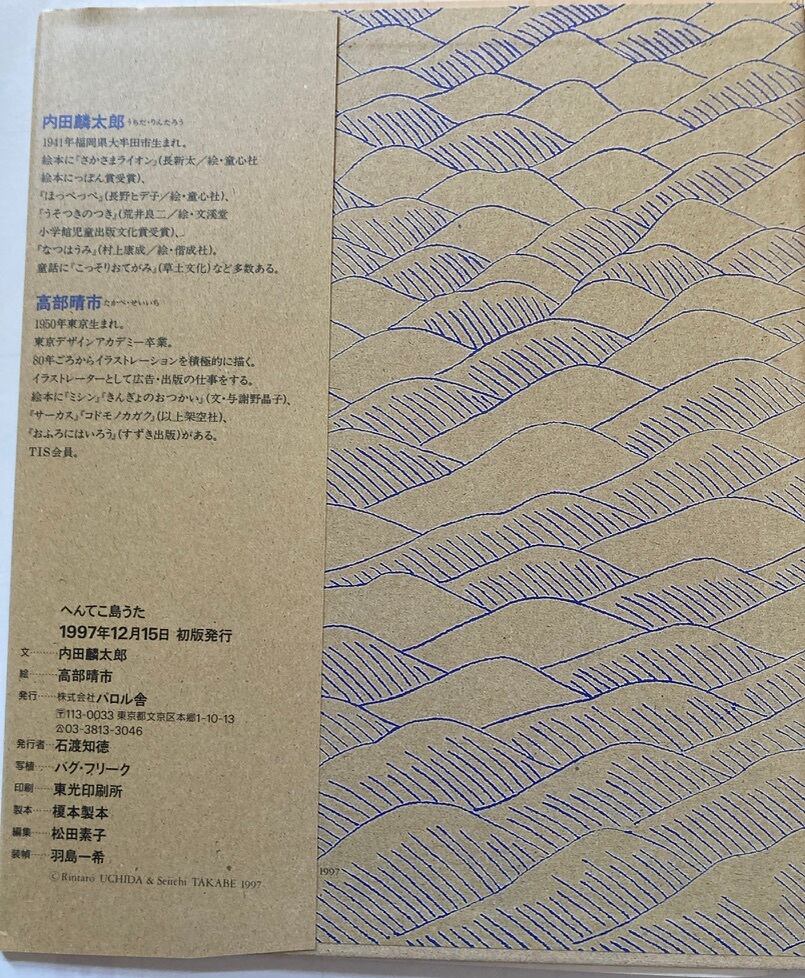 内田麟太郎 うちだ・りんたろう
1941年福岡県大牟田市生まれ。
絵本に『さかさまライオン』(長新太/絵・童心社
絵本にっぽん賞受賞)、
『ほっぺっぺ』(長野ヒデ子/絵・童心社)、
『うそつきのつき』(荒井良二/絵・文溪堂
小学館児童出版文化賞受賞)、
『なつはうみ』(村上康成/絵・偕成社)。
童話に『こっそりおてがみ』(草土文化)など多数ある。
高部晴市 たかべ・せいいち
1950年東京生まれ。
東京デザインアカデミー卒業。
80年ごろからイラストレーションを積極的に描く。
イラストレーターとして広告・出版の仕事をする。
絵本に『ミシン』『きんぎょのおつかい』(文・与謝野晶子)、
『サーカス』『コドモノカガク』(以上架空社)、
『おふろにはいろう』(すずき出版)がある。
TIS会員。
へんてこ島うた
1997年12月15日 初版発行
文………内田麟太郎
絵………高部晴市
発行……株式会社パロル舎
〒113-0033 東京都文京区本郷1-10-13
☎03-3813-3046
発行者…石渡知徳
写植……バグ・フリーク
印刷……東光印刷所
製本……榎本製本
編集……松田素子
装幀……羽島一希
©Rintaro UCHIDA & Seiichi TAKABE 1997
1997